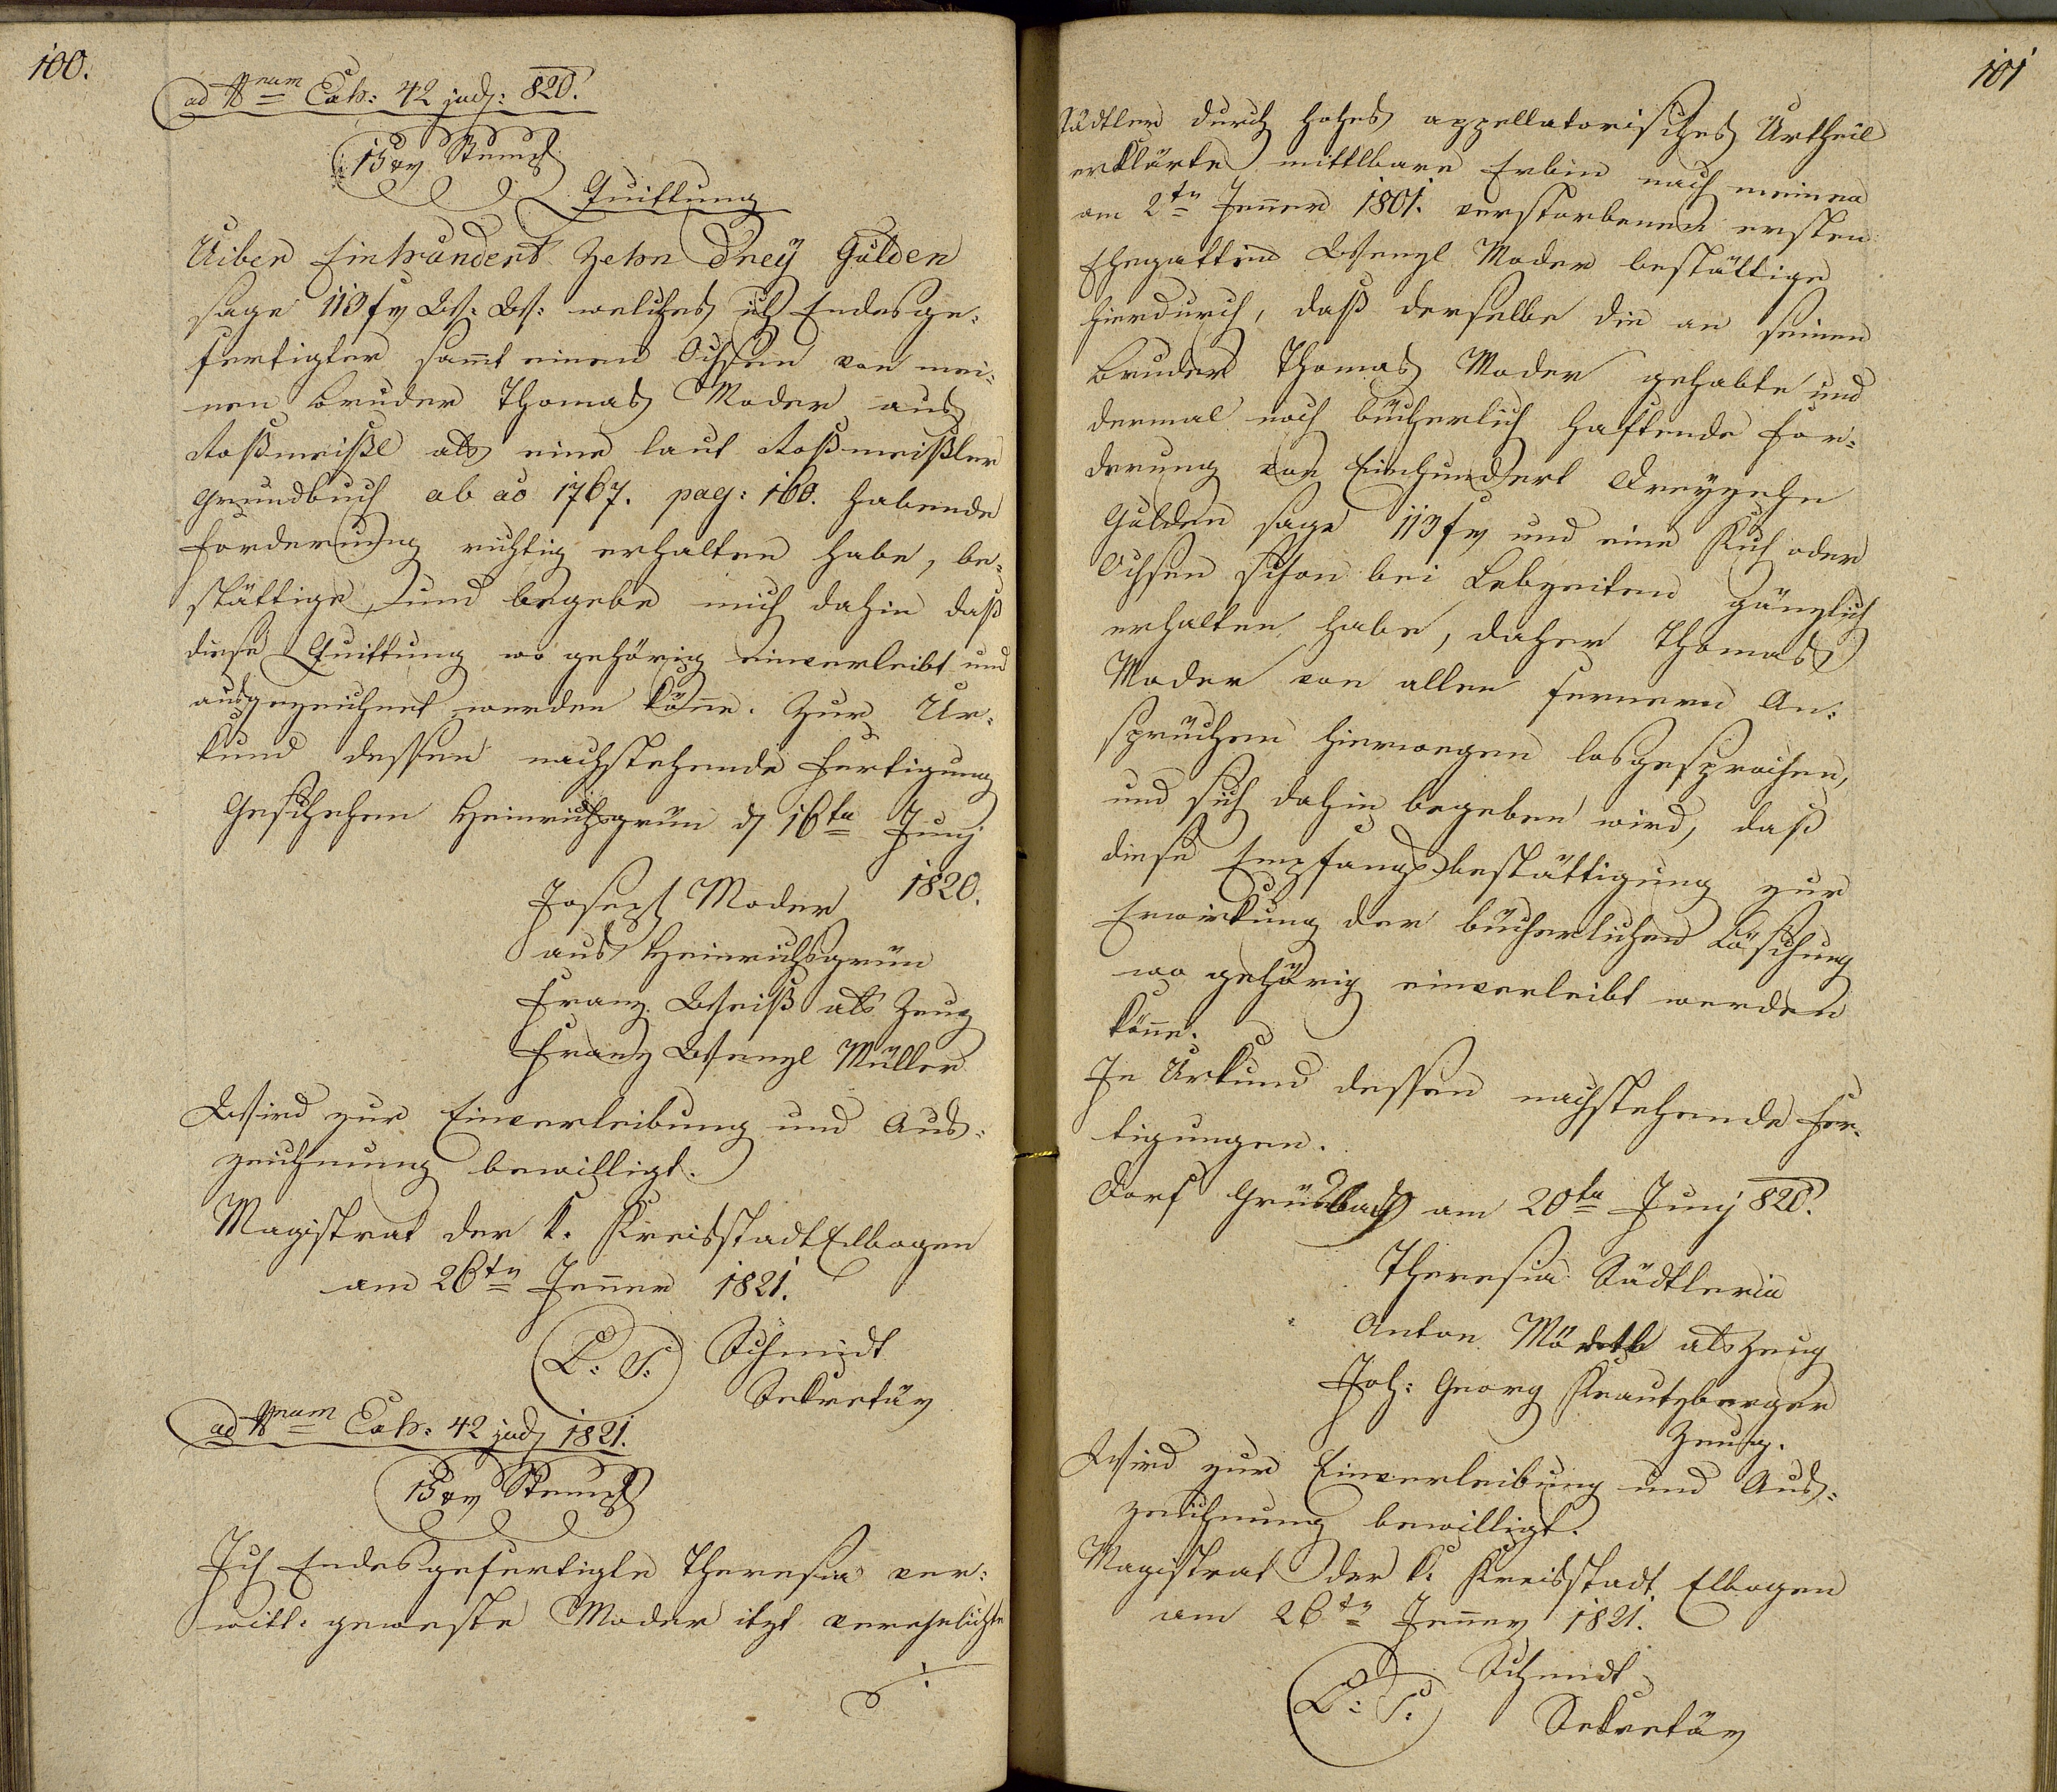 100.
ad Nrum Exh: 42 jud: 820.
15 xr Stempl
Quittung
Uiber Einhundert Zehn Drey Gulden
sage 113 fr W: W: welches ich Endesge-
fertigter sam̄t einen Ochsen von mei-
nen Bruder Thomas Moder aus
Roßmeißl als eine laut Roßmeißler
Grundbuch ab ao 1767. pag: 160. habende
Forderung richtig erhalten habe, be-
stättige, und begebe mich dahin daß
diese Quittung wo gehörig einverleibt und
ausgezeichnet werden kön̄e. Zur Ur-
kund dessen nachstehende Fertigung
Geschehen Heinrichsgrün d 16ten Junj
1820.
Joseph Moder
aus Heinrichsgrün
Franz Weiß als Zeug
Franz Wenzl Müller
Wird zur Einverleibung und Aus-
zeichnung bewilligt.
Magistrat der k. Kreisstadt Elbogen
am 26ten Jen̄er 1821.
L: S: Schmidt
Sekretär
ad Nrum Exh: 42 jud 1821.
15 xr Stempl
Ich Endesgefertigte Theresia ver-
witt: geweste Moder itzt verehelichte
./.
101
Städtler durch hohes appellatorisches Urtheil
erklärte mittlbare Erbin nach meinen
am 2ten Jen̄er 1801. verstorbenen ersten
Ehegatten Wenzl Moder bestättige
hierdurch, daß derselbe die an seinen
Bruder Thomas Moder gehabte und
dermal noch bücherlich haftende For-
derung von Einhundert Dreyzehn
Gulden sage 113 fr und eine Kuh oder
Ochsen schon bei Lebzeiten gänzlich
erhalten habe, daher Thomas
Moder von allen fernern An-
sprüchen hierwegen losgesprochen,
und sich dahin begeben wird, daß
diese Empfangsbestättigung zur
Erwirkung der bücherlichen Löschung
wo gehörig einverleibt werden
kön̄e.
In Urkund dessen nachstehende Fer-
tigungen.
Dorf Grünlas am 20ten Junj 820.
Theresia Städtlerin
Anton als Zeug
Joh: Georg Krautzberger
Zeug.
Wird zur Einverleibung und Aus-
zeichnung bewilligt.
Magistrat der k. Kreisstadt Elbogen
am 26ten Jen̄er 1821.
L: S: Schmidt
Sekretär